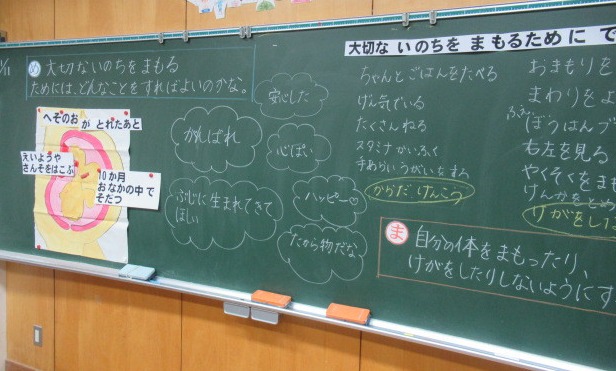 /11
め 大切ないのちをまもる
ためには、どんなことをすればよいのかな。
へそのおがとれたあと
えいようや
さんそをはこぶ
10か月
おなかの中で
そだつ
安心した
がんばれ
心ぱい
ぶじに生まれてきて
ほしい
ハッピー♡
たから物だな
大切ないのちをまもるためにで
ちゃんとごはんをたべる
げん気でいる
たくさんねる
スタミナかいふく
手あらいうがいをする
からだ けんこう
おまもりを
まわりをよ
ぼうはんブ
も左を見る
やくそくをま
けんかをとめ
けがをした
ま 自分の体をまもったり、
けがをしたりしないようにす